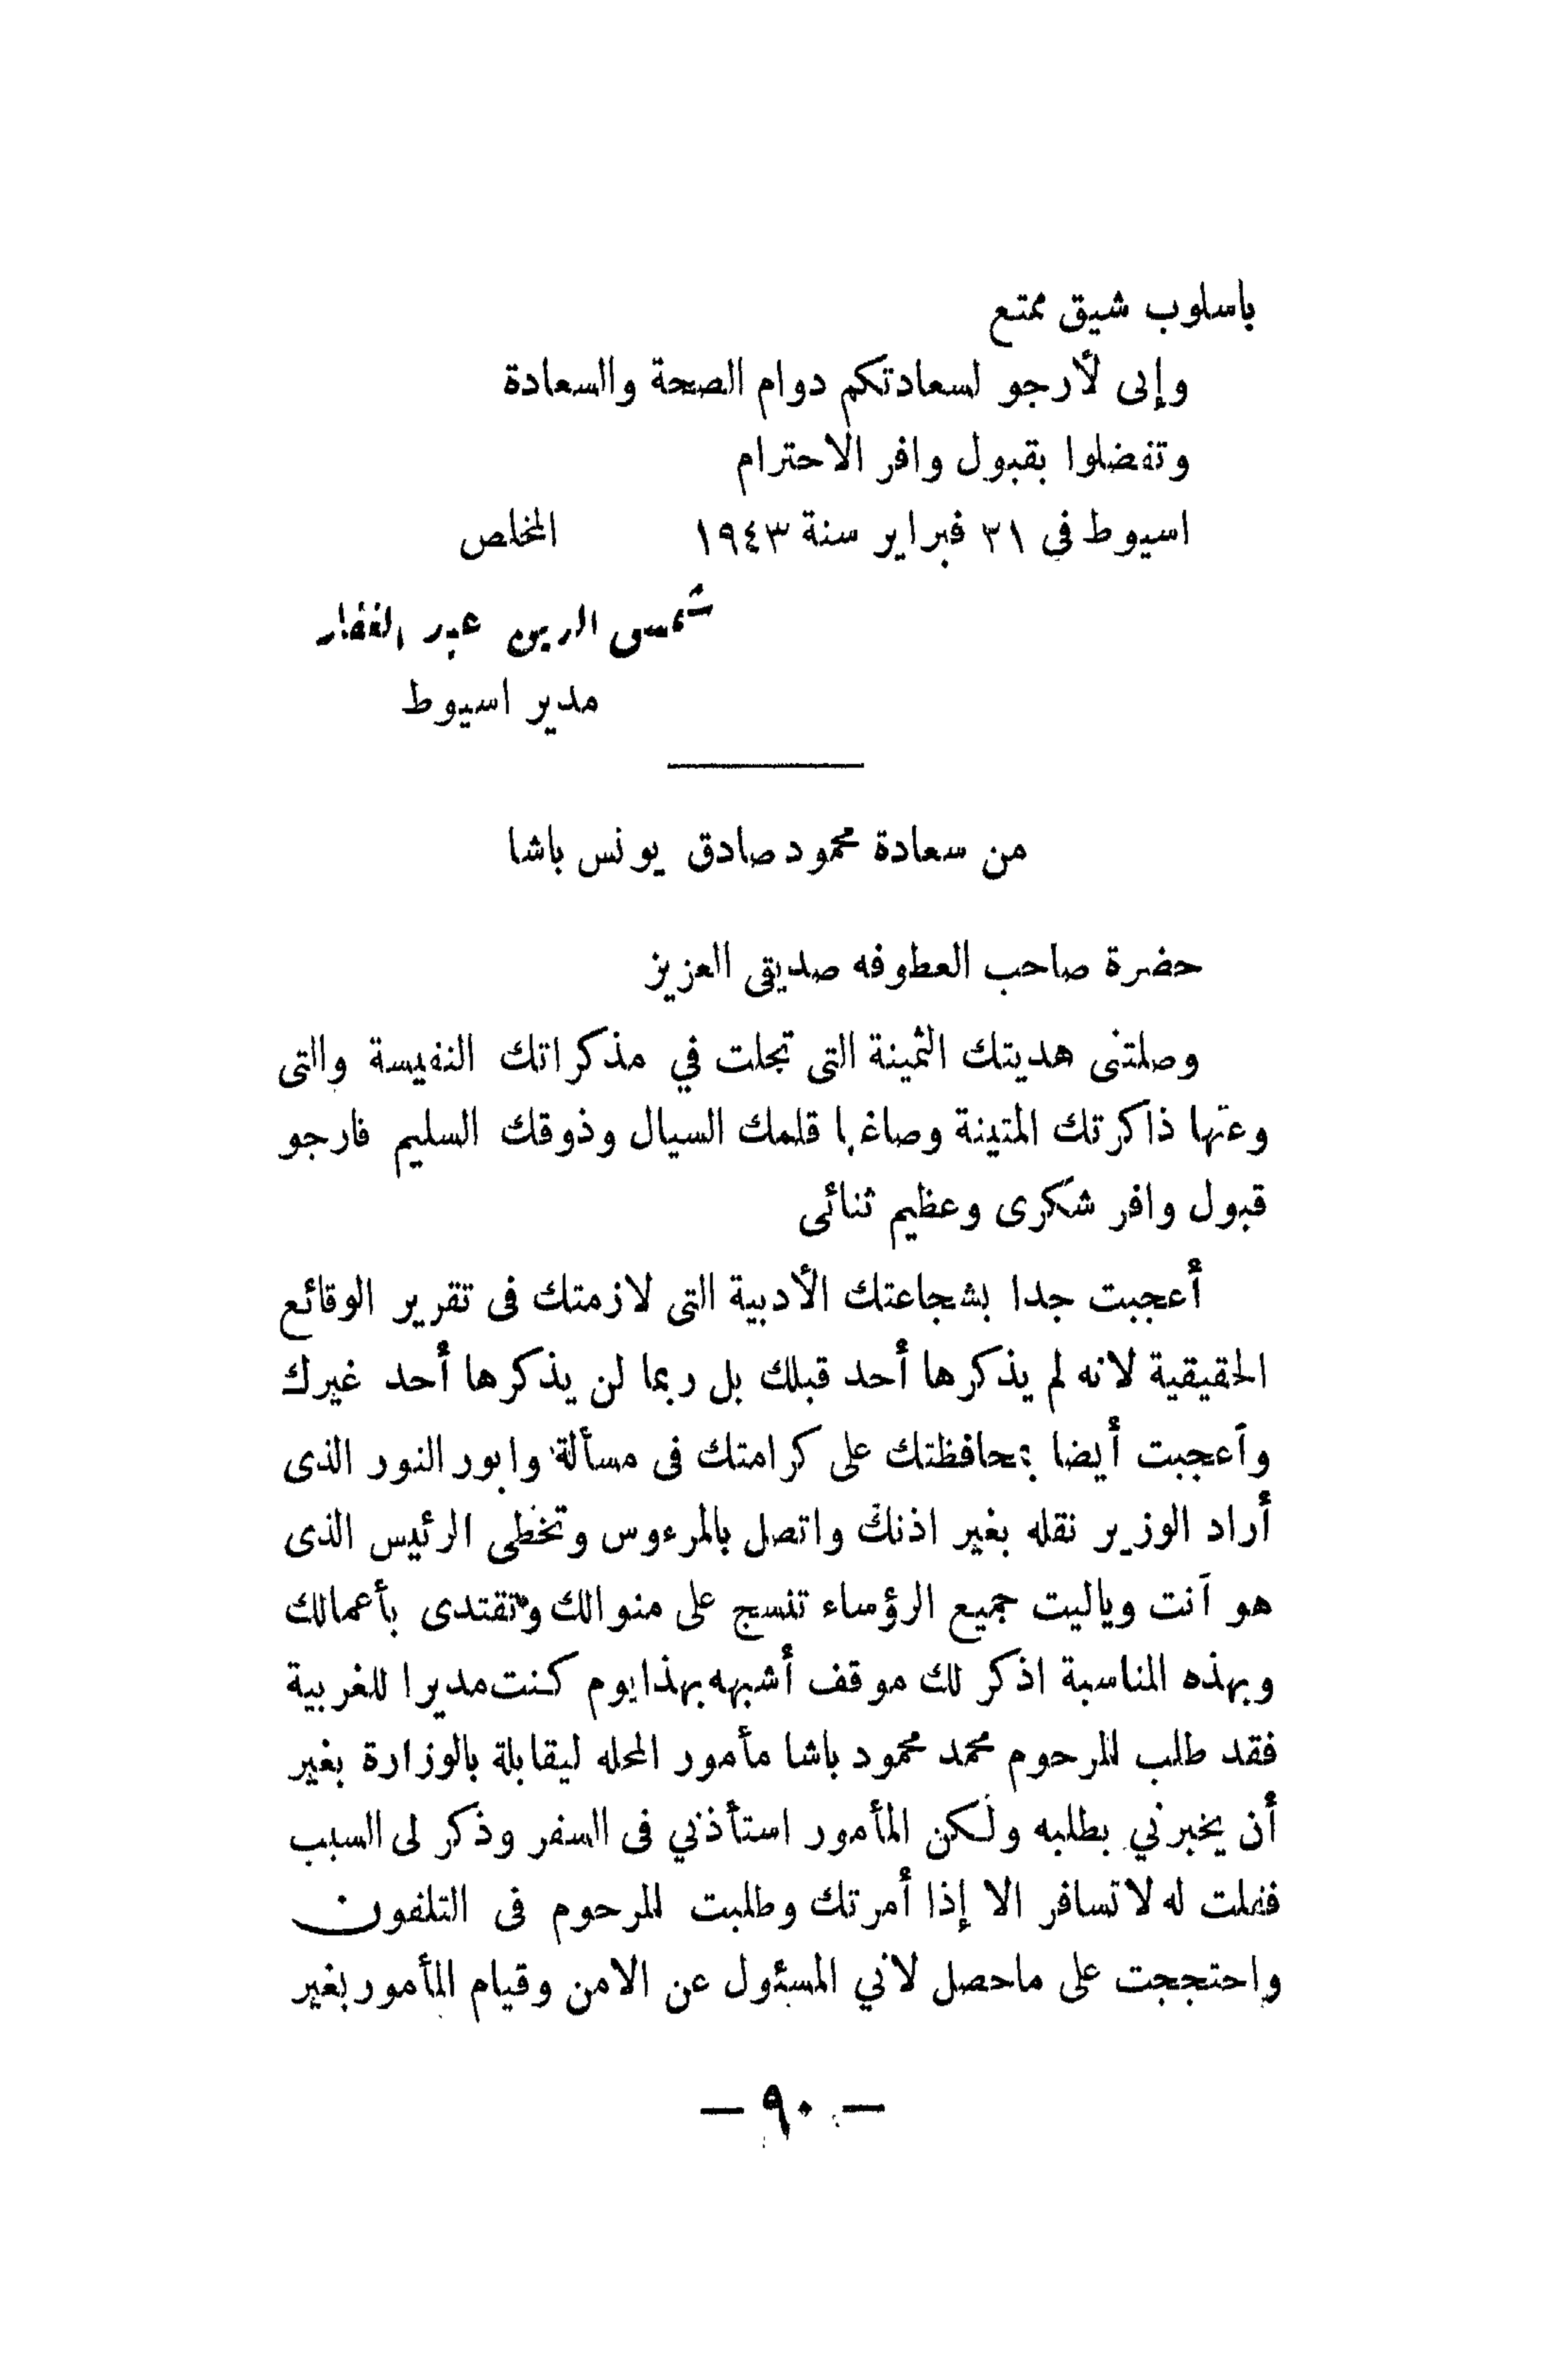 باسلوب شيق ممتع
وإنى لأرجو لسعادتكم دوام الصحة والسعادة
وتفضلوا بقبول وافر الاحترام
اسيوط فى ٣١ فبراير سنة ١٩٤٣ المخلص
شمس الدين عبد الغفار
مدير اسيوط
من سعادة محمود صادق يونس باشا
حضرة صاحب العطوفه صديقى العزيز
وصلتنى هديتك الثمينة التى تجلت في مذكراتك النفيسة والتى
وعتها ذاكرتك المتينة وصاغها قلمك السيال وذوقك السليم فارجو
قبول وافر شكرى وعظيم ثنائى
أعجبت جدا بشجاعتك الأدبية التى لازمتك فى تقرير الوقائع
الحقيقية لانه لم يذكرها أحد قبلك بل ربما لن يذكرها أحد غيرك
وأعجبت أيضا بمحافظتك على كرامتك فى مسألة وابور النور الذى
أراد الوزير نقله بغير اذنك واتصل بالمرءوس وتخطى الرئيس الذى
هو أنت وياليت جميع الرؤساء تنسج على منوالك وتقتدى بأعمالك
وبهذه المناسبة اذكر لك موقف أشبهه بهذا يوم كنت مديرا للغربية
فقد طلب المرحوم محمد محمود باشا مأمور المحله ليقابلة بالوزارة بغير
أن يخبرني بطلبه ولكن المأمور استأذني فى السفر وذكر لى السبب
فقلت له لا تسافر الا إذا أمرتك وطلبت المرحوم فى التلفون
واحتججت على ماحصل لاني المسئول عن الامن وقيام المأمور بغير
— ٩٠ —